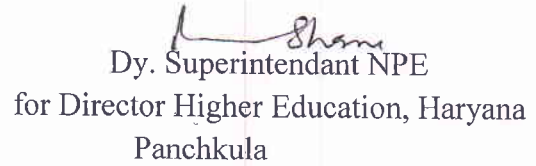 Dy. Superintendant NPE
for Director Higher Education, Haryana
Panchkula